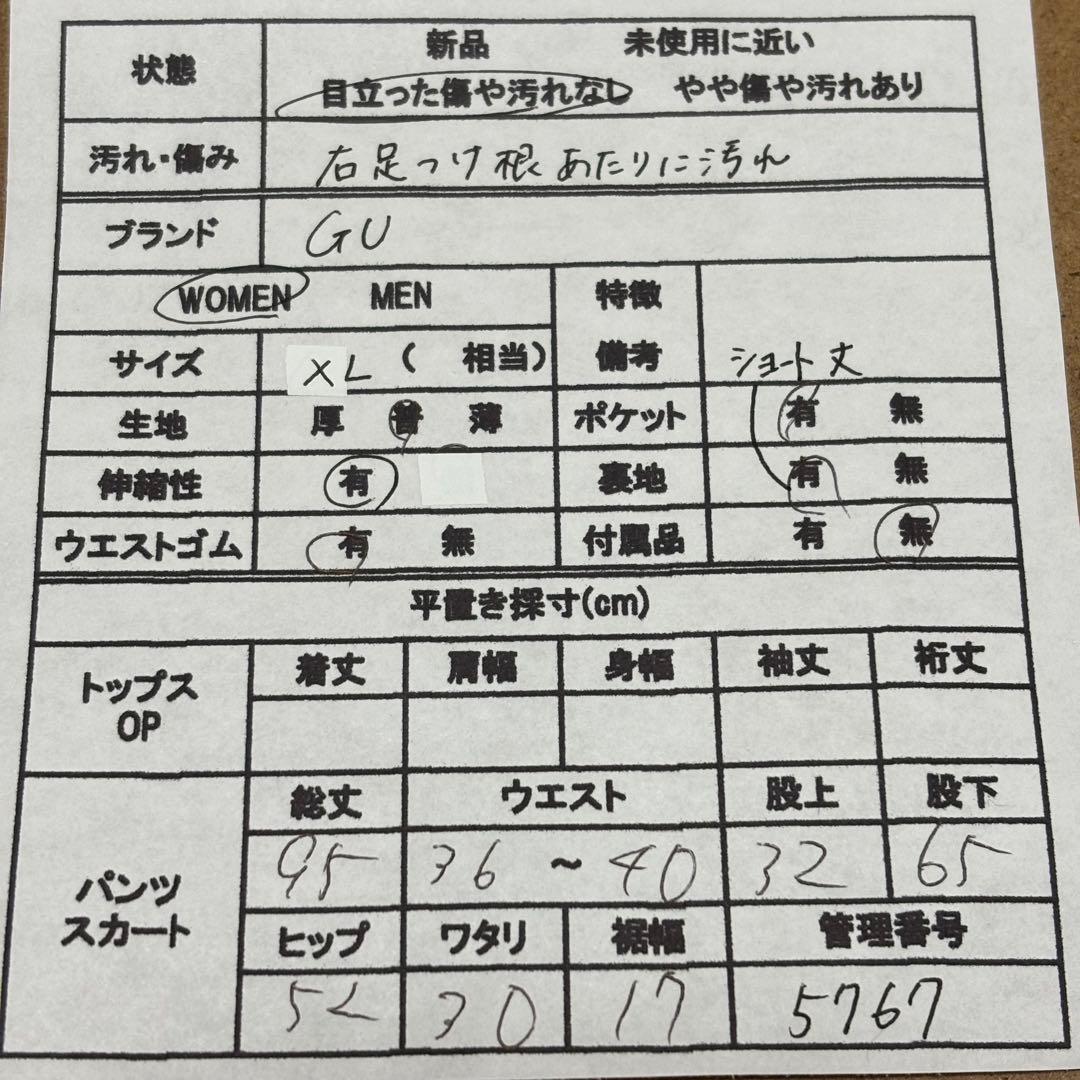 状態 新品 未使用に近い
目立った傷や汚れなし やや傷や汚れあり
汚れ・傷み 右足つけ根あたりに汚れ
ブランド GU
WOMEN MEN 特徴
サイズ XL ( 相当) 備考 ショート丈
生地 厚 普 薄 ポケット 有 無
伸縮性 有 裏地 有 無
ウエストゴム 有 無 付属品 有 無
平置き採寸(cm)
トップス
OP
着丈 肩幅 身幅 袖丈 裄丈
パンツ
スカート
総丈 ウエスト 股上 股下
95 36 ~ 40 32 65
ヒップ ワタリ 裾幅 管理番号
52 30 17 5767